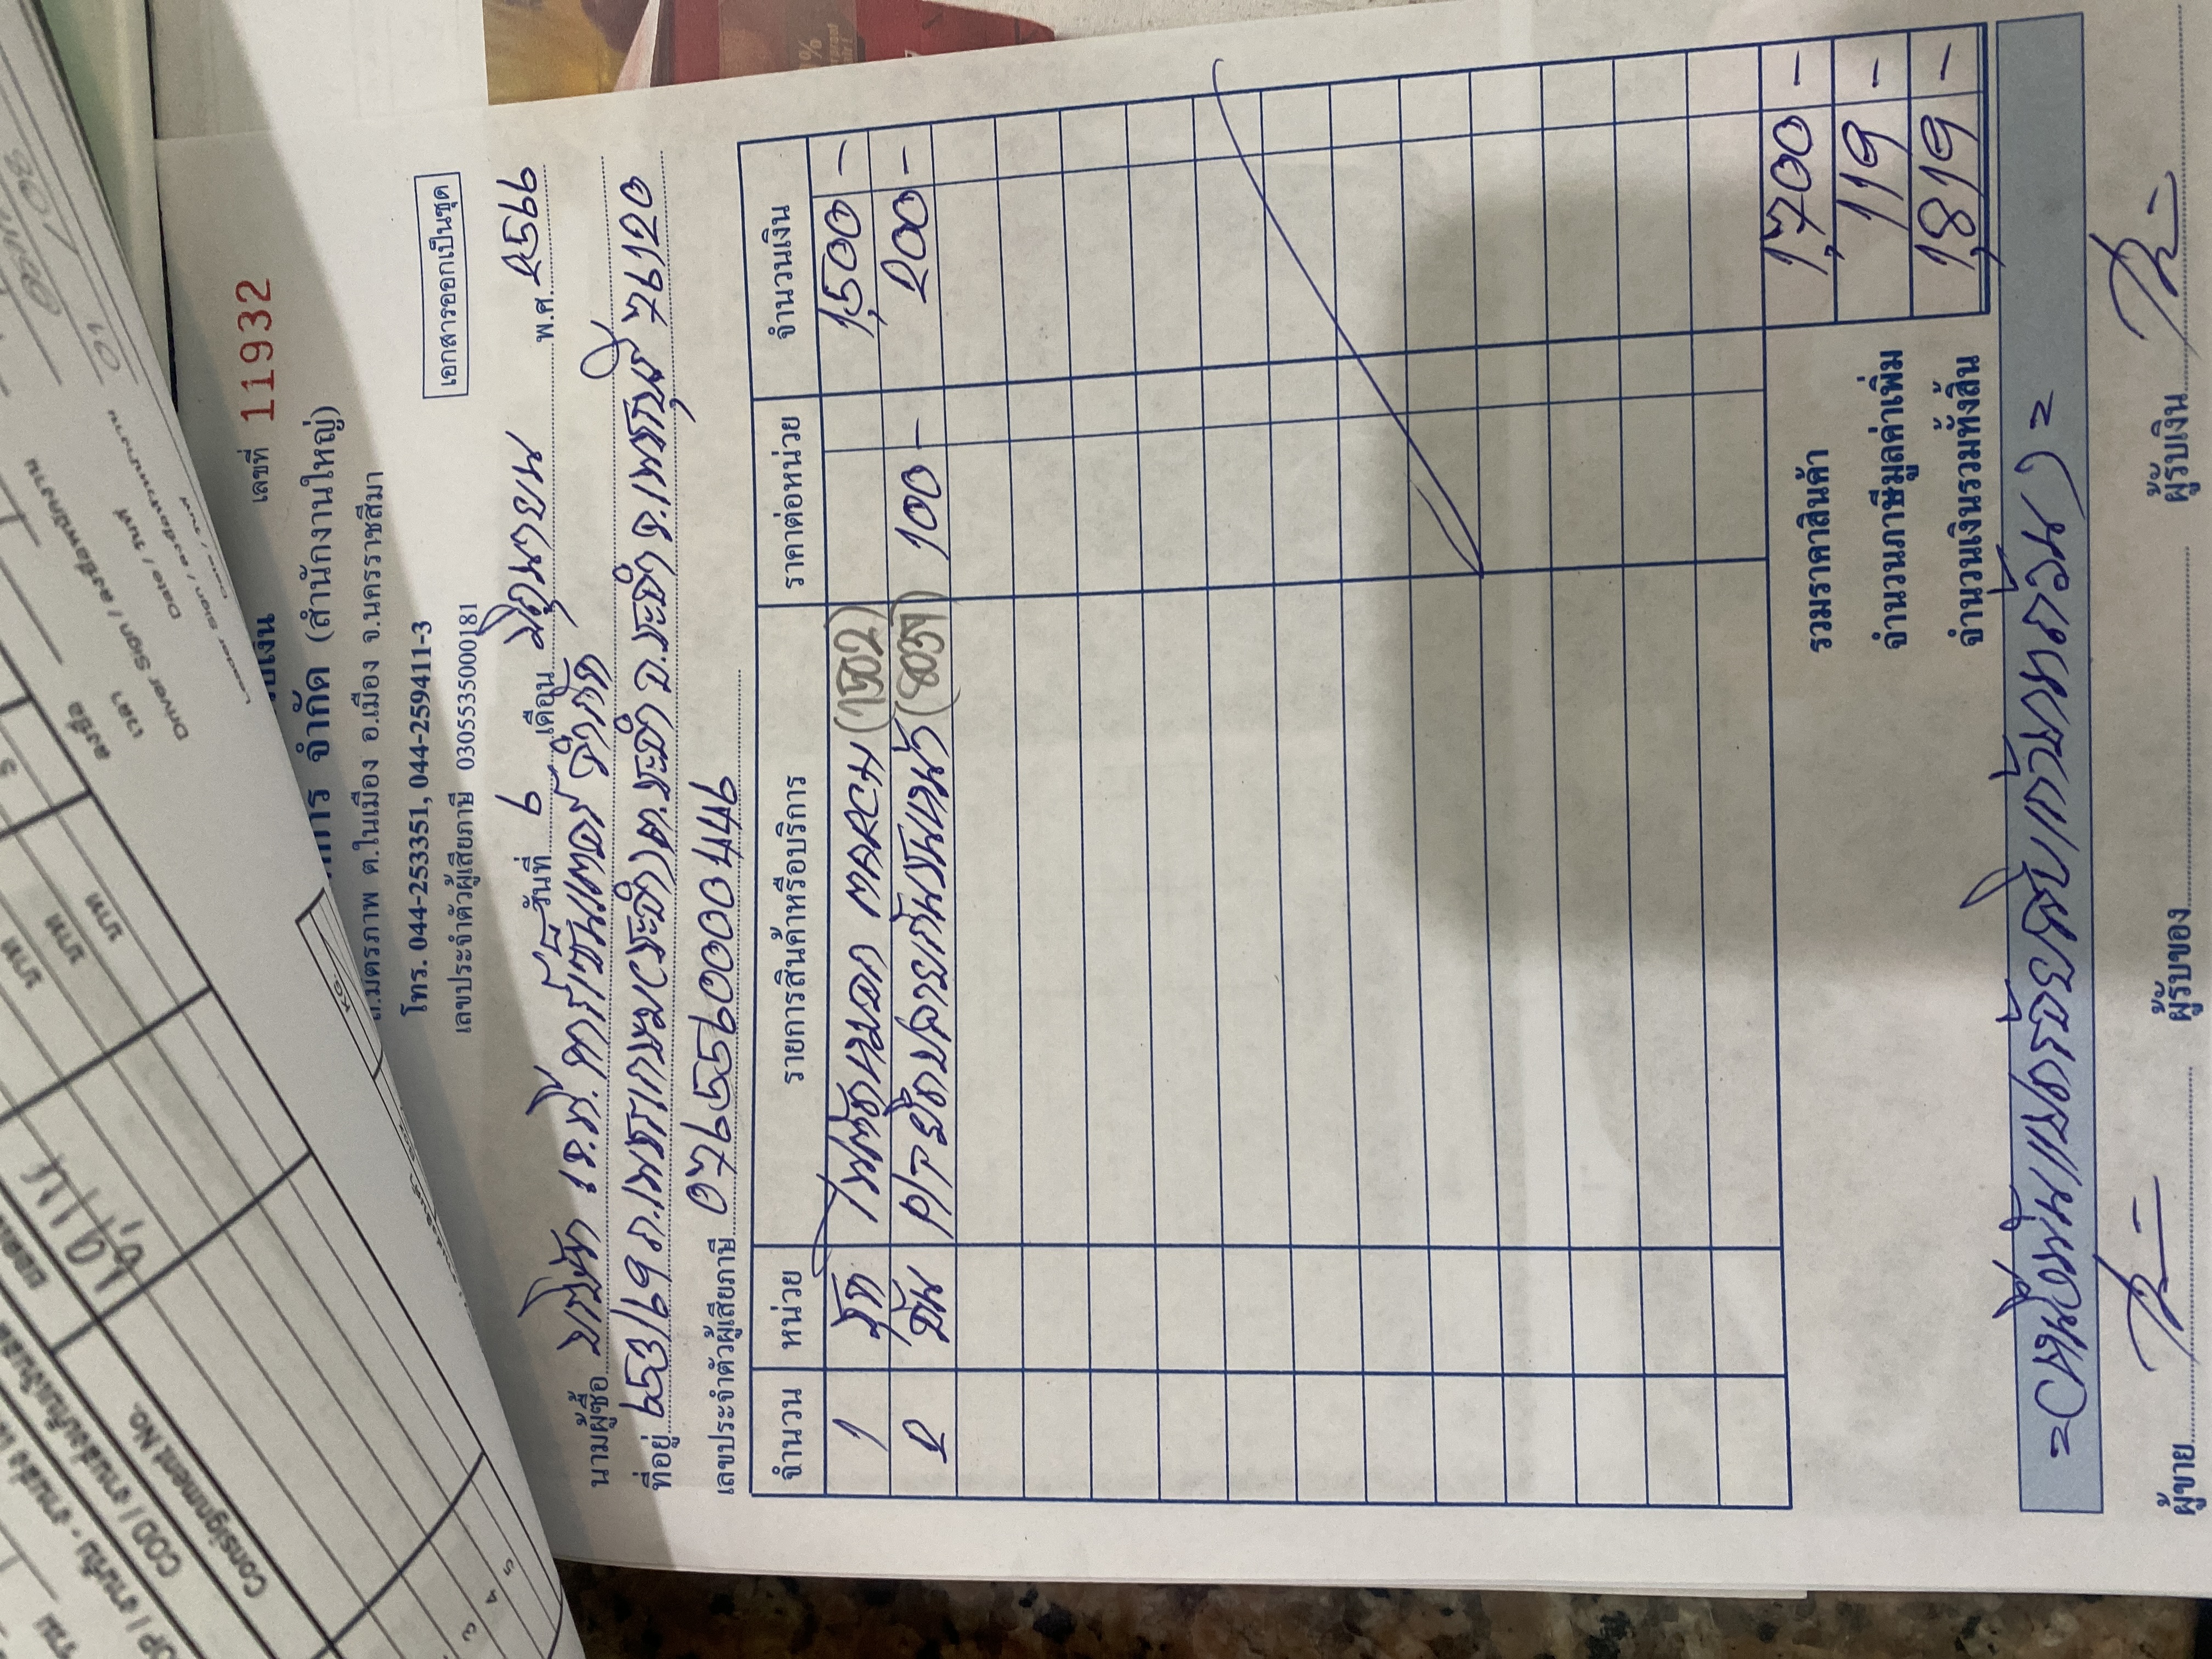 เลขที่ 11932
การ จำกัด (สำนักงานใหญ่)
ถ.มิตรภาพ ต.ในเมือง อ.เมือง จ.นครราชสีมา
โทร. 044-253351, 044-259411-3
เลขประจำตัวผู้เสียภาษี 0305535000181
เอกสารออกเป็นชุด
วันที่ 9 เดือน มิถุนายน พ.ศ. 2566
นามผู้ซื้อ บริษัท เจ.ที. คาร์เซ็นเตอร์ จำกัด
ที่อยู่ 653/69 ถ.เพชรเกษม(ชะอำ) ต.ชะอำ อ.ชะอำ จ.เพชรบุรี 76120
เลขประจำตัวผู้เสียภาษี 0765560000446
จำนวน หน่วย รายการสินค้าหรือบริการ ราคาต่อหน่วย จำนวนเงิน
1 ชุด ไฟตัดหมอก MARCH (1502) 1,500 -
2 อัน P/T ยึดปลายกันชนหน้า (8039) 100 - 200 -
รวมราคาสินค้า 1,700 -
จำนวนภาษีมูลค่าเพิ่ม 119 -
จำนวนเงินรวมทั้งสิ้น 1,819 -
=(หนึ่งพันแปดร้อยสิบเก้าบาทถ้วน)=
ผู้ขาย ผู้รับของ ผู้รับเงิน
Consignment No.
COD /
Driver Sign /
Date / วันที่
KG.
บาท
บาท
บาท
3
4
5